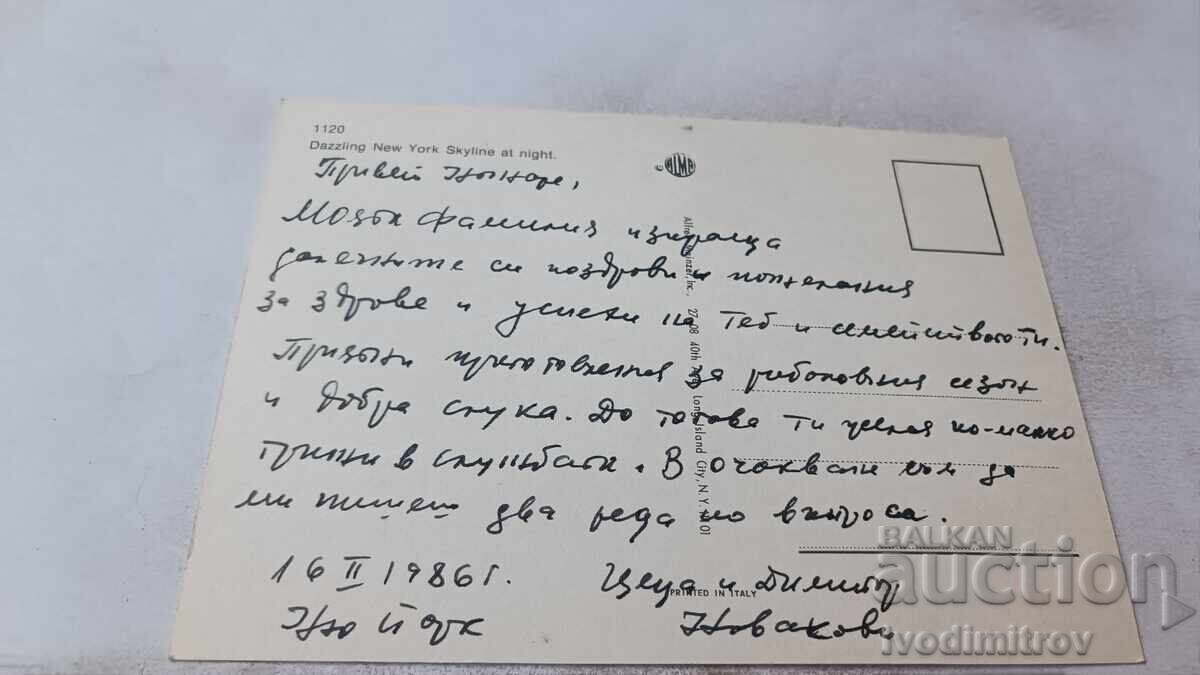 1120
Dazzling New York Skyline at night.
© ALMA
Привет
фамилия изпраща
си поздрави и пожелания
за здраве и успехи на Теб и семейството Ти.
за риболовния сезон
и добра слука. До тогава Ти желая по-малко
грижи в службата. В очакване съм да
ми пишеш два реда по въпроса.
16 II 1986 г.
Ню Йорк
Цеца и Димитър
Новакови
27-08 40th Ave., Long Island City, N.Y. 11101
PRINTED IN ITALY
BALKAN
auction
ivodimitrov